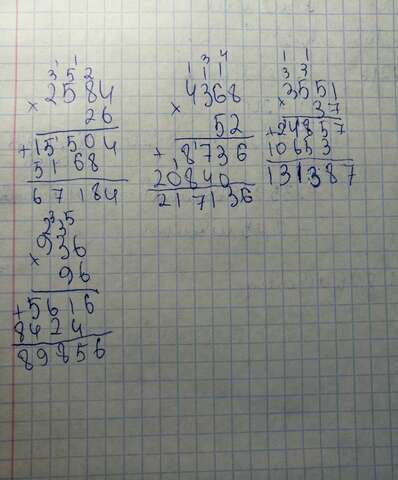 1 1
3 5 2
2584
×
26
+15504
5168
67184
3 4
1 1 1
4368
×
52
+8736
20840
217136
1 1
3 3
3551
×
37
+24857
10653
131387
2 3 5
936
×
96
+5616
8424
89856